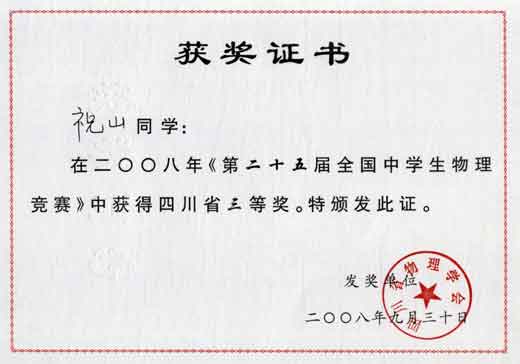 获奖证书
祝山同学:
在二〇〇八年《第二十五届全国中学生物理
竞赛》中获得四川省三等奖。特颁发此证。
发奖单位
四川省物理学会
二〇〇八年九月三十日